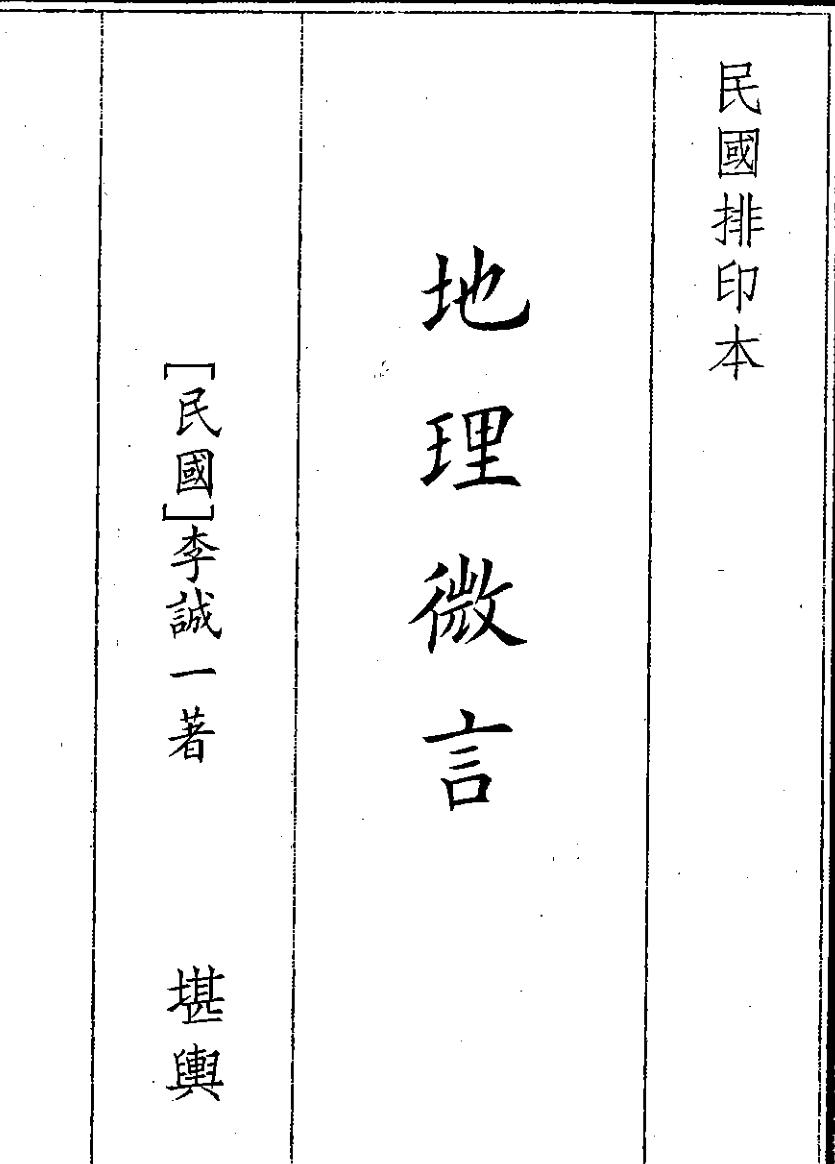 民國排印本
地理微言
[民國]李誠一著
堪輿